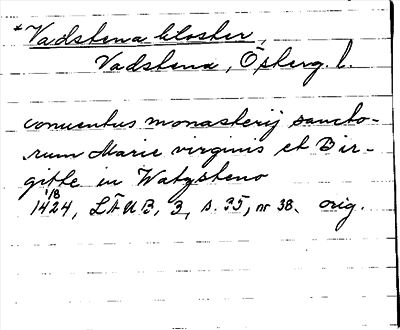 *Vadstena kloster,
Vadstena, Österg. l.
conuentus monasterij sancto-
rum Marie virginis et Bir-
gitte in Watzsteno
1/8
1424, LÄUB, 3, s. 35, nr 38. orig.